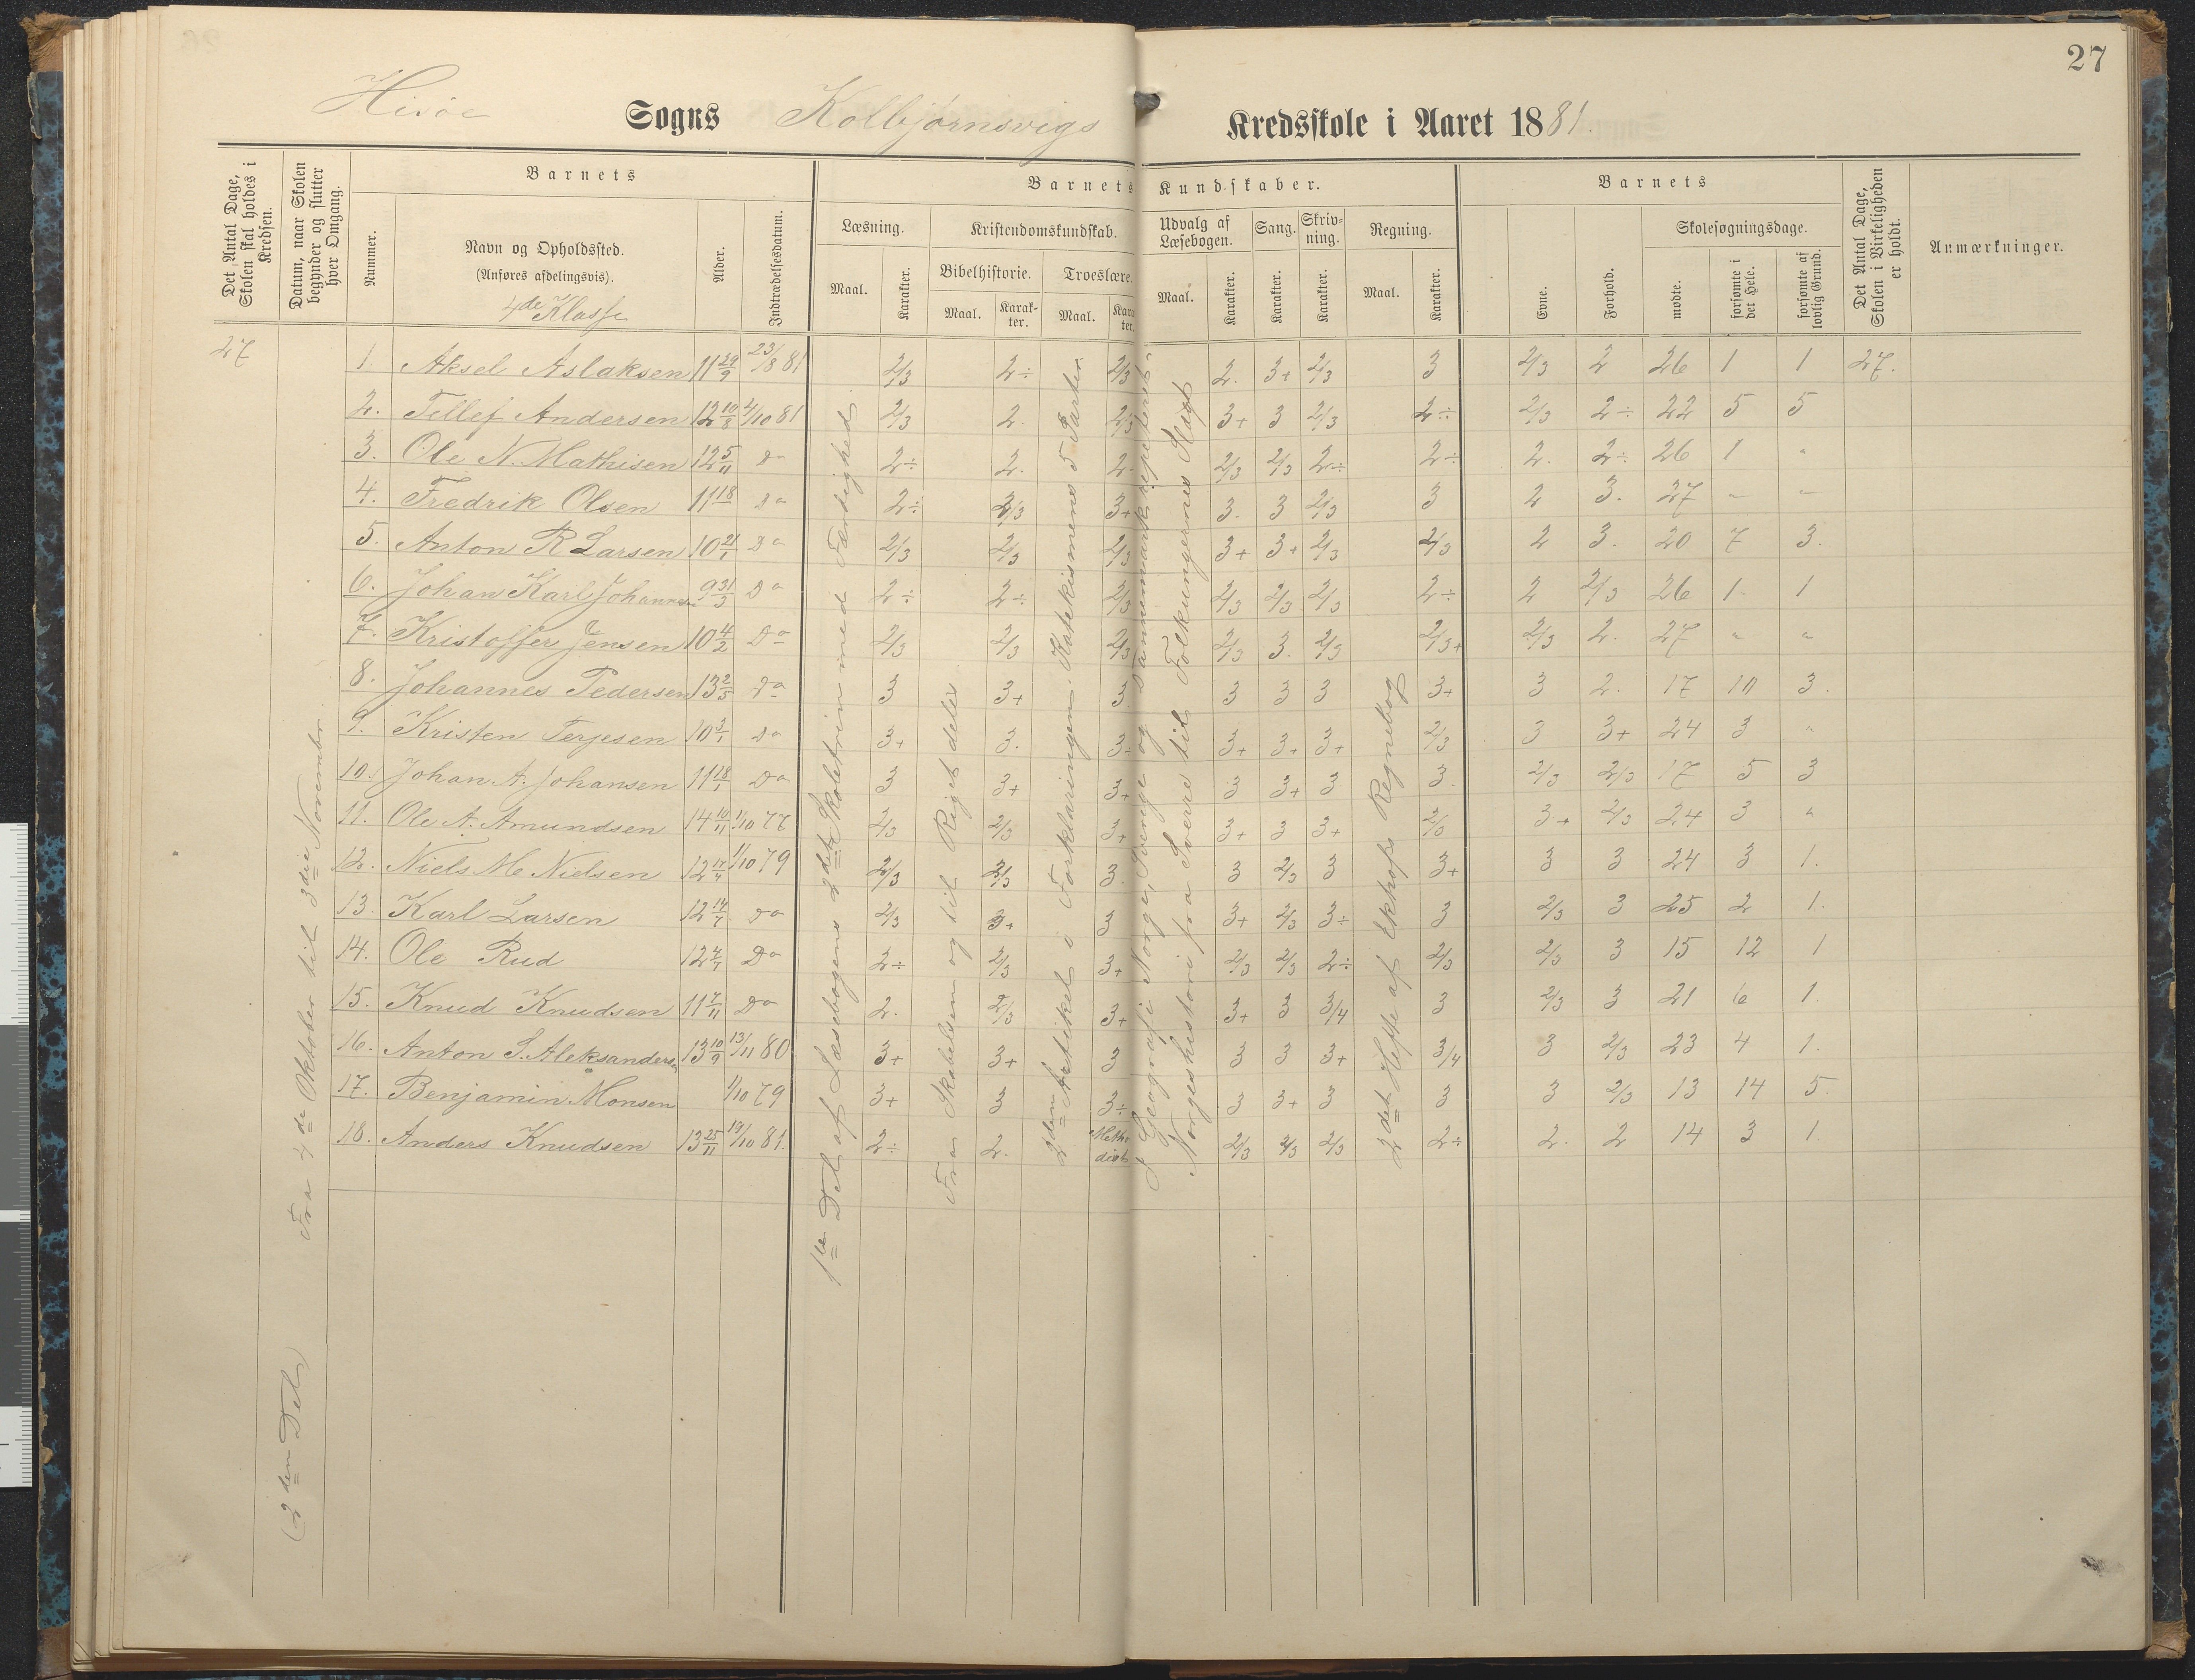 27
Hisøe Sogns Kolbjørnsvigs Kredsskole i Aaret 1881.
Det Antal Dage, Skolen skal holdes i Kredsen.
Datum, naar Skolen begynder og slutter hver Omgang.
Barnets
Nummer.
Navn og Opholdssted.
(Anføres afdelingsvis).
4de Klasse
Alder.
Indtrædelsesdatum.
Barnets Kundskaber.
Læsning.
Maal.
Karakter.
Kristendomskundskab.
Bibelhistorie.
Maal.
Karakter.
Troeslære.
Maal.
Karakter.
Udvalg af Læsebogen.
Maal.
Karakter.
Sang.
Karakter.
Skrivning.
Karakter.
Regning.
Maal.
Karakter.
Barnets
Evne.
Forhold.
Skolesøgningsdage.
mødte.
forsømte i det Hele.
forsømte af lovlig Grund.
Det Antal Dage, Skolen i Virkeligheden er holdt.
Anmærkninger.
27
(2den Del) Fra 4de Oktober til 3die November.
1ste Del af Læsebogens 2det Skoletrin med Færdighed.
Fra Skabelsen og til Riget deles
2den Artikel i Forklaringen. Katekismens 5 Parter.
I Geografi Norge, Sverige og Dannemark repeteret.
Norgeshistorie fra Sverre til Folkungernes Slægt
2det Hefte af Ekhofs Regnebog
1. Aksel Aslaksen 11 29/9 23/8 81 2/3 2÷ 2/3 2. 3+ 2/3 3 2/3 2 26 1 1 27.
2. Tellef Andersen 12 10/8 4/10 81 2/3 2. 2/3 3+ 3 2/3 2÷ 2/3 2÷ 22 5 5
3. Ole N. Mathisen 12 5/11 Do 2÷ 2. 2÷ 2/3 2/3 2÷ 2÷ 2. 2÷ 26 1 "
4. Fredrik Olsen 11 18 Do 2÷ 2/3 3+ 3. 3 2/3 3 2 3. 27 " "
5. Anton R Larsen 10 21/1 Do 2/3 2/3 2/3 3+ 3+ 2/3 2/3 2 3. 20 7 3.
6. Johan Karl Johannesen 9 31/3 Do 2÷ 2÷ 2/3 2/3 2/3 2/3 2÷ 2 2/3 26 1 1
7. Kristoffer Jensen 10 4/2 Do 2/3 2/3 2/3 2/3 3. 2/3 2/3+ 2/3 2. 27 " "
8. Johannes Pedersen 13 2/5 Do 3 3+ 3 3 3 3 3+ 3 2. 17 10 3.
9. Kristen Terjesen 10 3/1 Do 3+ 3. 3÷ 3+ 3+ 3+ 2/3 3 3+ 24 3 "
10. Johan A. Johansen 11 18/1 Do 3 3+ 3+ 3 3+ 3 3. 2/3 2/3 17 5 3
11. Ole A. Amundsen 14 10/11 1/10 77 2/3 2/3 3+ 3+ 3 3+ 2/3 3+ 2/3 24 3 "
12. Niels M Nielsen 12 17/4 1/10 79 2/3 2/3 3. 3 2/3 3 3+ 3 3 24 3 1.
13. Karl Larsen 12 14/7 Do 2/3 3+ 3 3+ 2/3 3÷ 3 2/3 3 25 2 1.
14. Ole Rud 12 4/1 Do 2÷ 2/3 3+ 2/3 2/3 2÷ 2/3 2/3 3 15 12 1
15. Knud Knudsen 11 7/11 Do 2. 2/3 3+ 3+ 3 3/4 3 2/3 3 21 6 1.
16. Anton S. Aleksanders. 13 10/9 13/11 80 3+ 3+ 3 3 3 3+ 3/4 3 2/3 23 4 1.
17. Benjamin Monsen 1/10 79 3+ 3 3÷ 3 3+ 3 3 3 2/3 13 14 5.
18. Anders Knudsen 13 25/11 19/10 81. 2÷ 2. Methodist 2/3 2/3 2/3 2÷ 2. 2 14 3 1.